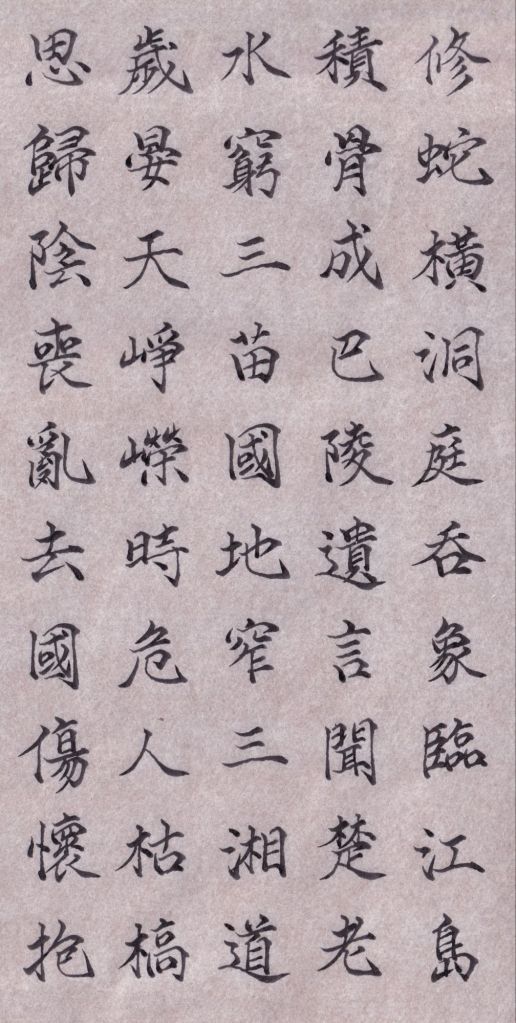 修蛇橫洞庭吞象臨江島
積骨成巴陵遺言聞楚老
水窮三苗國地窄三湘道
歲晏天崢嶸時危人枯槁
思歸陰喪亂去國傷懷抱